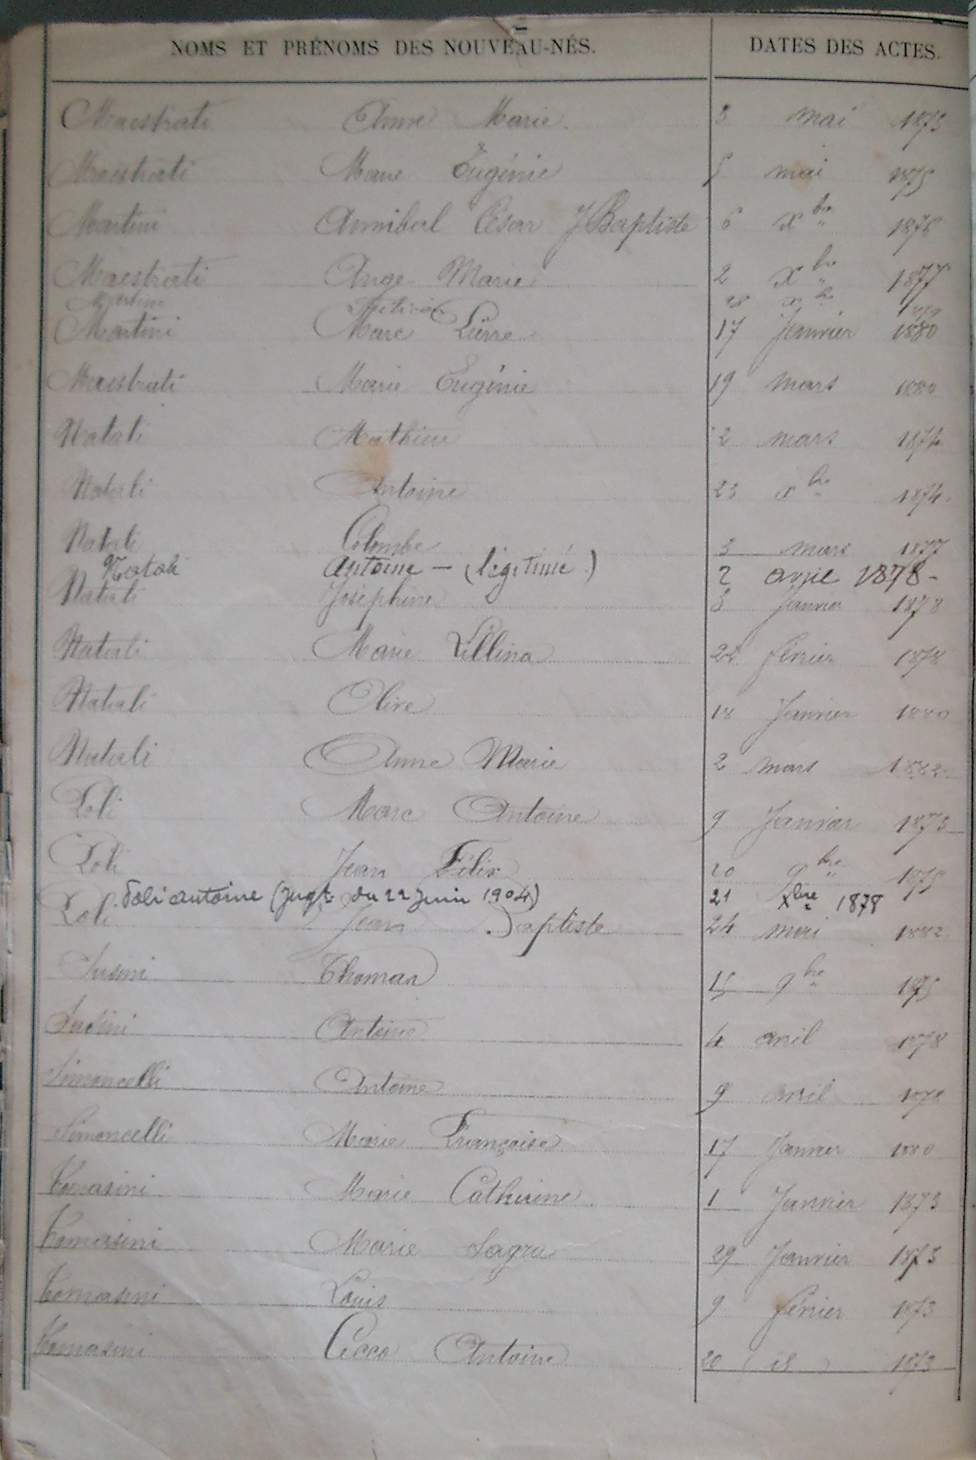 NOMS ET PRÉNOMS DES NOUVEAU-NÉS. DATES DES ACTES.
Maestrati Anne Marie 3 mai 1875
Maestrati Marie Eugénie 5 mai 1875
Martini Annibal César J Baptiste 6 xbre 1878
Maestrati Ange Marie 2 xbre 1877
Martini 28 xbre
Martini Marc Pierre 17 Janvier 1880
Maestrati Marie Eugénie 19 mars 1880
Natali Mathieu 2 mars 1874
Natali Antoine 23 xbre 1874
Natali Colombe 3 mars 1877
Natali Antoine – (légitimé.) 2 avril 1878-
Natali Joséphine 3 Janvier 1878
Natali Marie Lillina 22 février 1878
Natali Olive 18 Janvier 1880
Natali Anne Marie 2 mars 1882
Poli Marc Antoine 9 Janvier 1873
Poli Jean Félix 20 9bre 1875
Poli antoine (Jugt du 22 Juin 1904) 21 Xbre 1878
Poli Jean Baptiste 24 mai 1882
Susini Thomas 15 9bre 1875
Susini Antoine 4 avril 1878
Simoncelli Antoine 9 avril 1878
Simoncelli Marie Françoise 17 Janvier 1880
Tomasini Marie Catherine 1 Janvier 1873
Tomasini Marie Sagra 29 Janvier 1873
Tomasini Louis 9 février 1873
Tomasini Cecco Antoine 20 id 1873